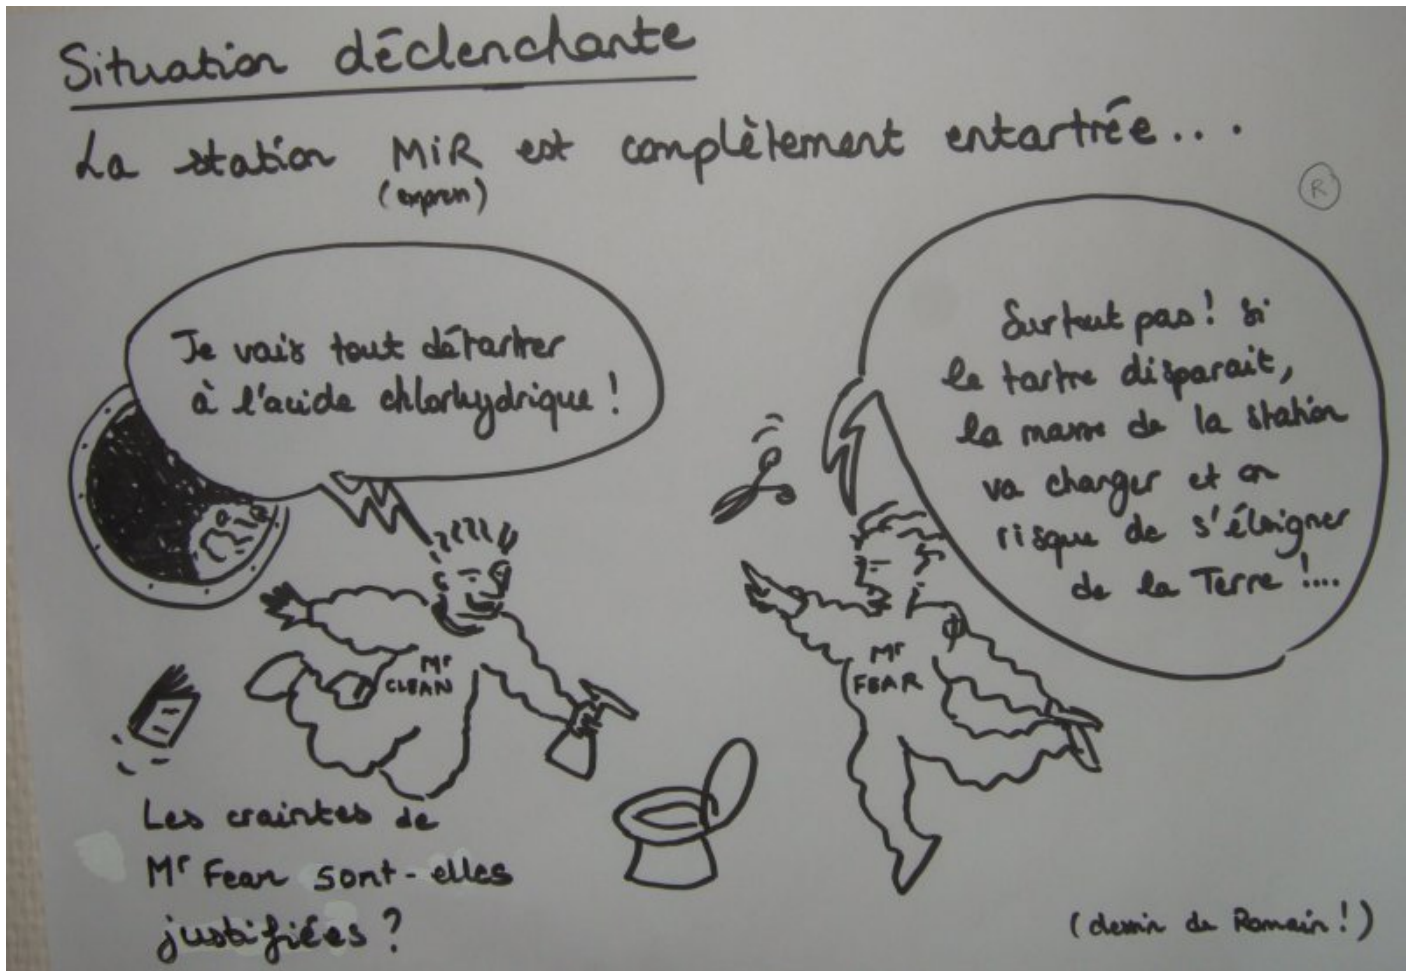 Situation déclenchante
La station MiR est complètement entartrée...
(expren)
R
Je vais tout détartrer
à l'acide chlorhydrique !
Surtout pas! Si
le tartre disparait,
la masse de la station
va changer et on
risque de s'éloigner
de la Terre !....
Mr
CLEAN
Mr
FEAR
Les craintes de
Mr Fear sont-elles
justifiées ?
(dessin de Romain !)